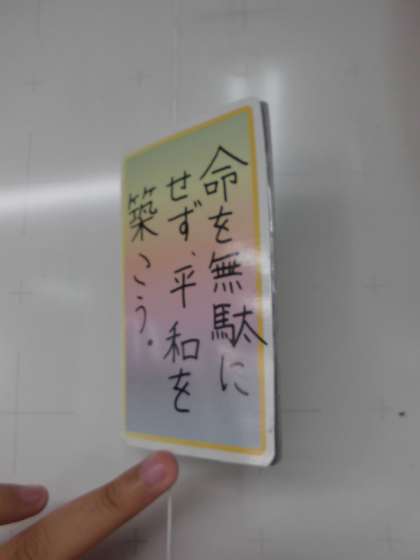 命を無駄に
せず、平和を
築こう.